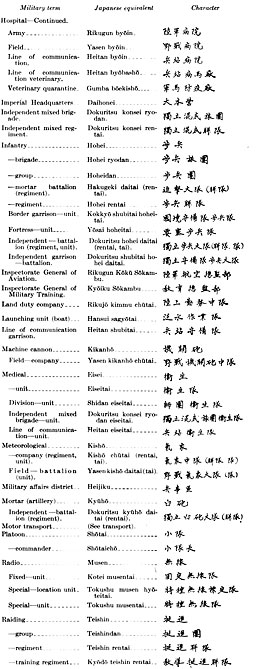 Military term Japanese equivalent Character
Hospital—Continued.
Army Rikugun byōin 陸軍病院
Field Yasen byōin 野戦病院
Line of communication. Heitan byōin 兵站病院
Line of communication veterinary. Heitan byōbashō 兵站病馬廠
Veterinary quarantine. Gumba bōekishō 軍馬防疫廠
Imperial Headquarters Daihonei 大本営
Independent mixed brigade. Dokuritsu konsei ryodan. 獨立混成旅團
Independent mixed regiment. Dokuritsu konsei rentai. 獨立混成聯隊
Infantry Hohei 歩兵
—brigade Hohei ryodan 歩兵旅團
—group Hoheidan 歩兵團
—mortar battalion (regiment). Hakugeki daitai (rentai). 迫撃大隊(聯隊)
—regiment Hohei rentai 歩兵聯隊
Border garrison—unit. Kokkyō shubitai hoheitai. 國境守備隊歩兵隊
Fortress—unit Yōsai hoheitai 要塞歩兵隊
Independent—battalion (regiment, unit). Dokuritsu hohei daitai (rentai, tai). 獨立歩兵大隊(聯隊,隊)
Independent garrison—battalion. Dokuritsu shubitai hohei daitai. 獨立守備隊歩兵大隊
Inspectorate General of Aviation. Rikugun Kōkū Sōkambu. 陸軍航空總監部
Inspectorate General of Military Training. Kyōiku Sōkambu 教育總監部
Land duty company Rikujō kimmu chūtai 陸上勤務中隊
Launching unit (boat) Hansui sagyōtai 泛水作業隊
Line of communication garrison. Heitan shubitai 兵站守備隊
Machine cannon Kikanhō 機關砲
Field—company Yasen kikanhō chūtai 野戰機關砲中隊
Medical Eisei 衛生
—unit Eiseitai 衛生隊
Division—unit Shidan eiseitai 師團衛生隊
Independent mixed brigade—unit. Dokuritsu konsei ryodan eiseitai. 獨立混成旅團衛生隊
Line of communication—unit. Heitan eiseitai 兵站衛生隊
Meteorological Kishō 氣象
—company (regiment, unit). Kishō chūtai (rentai, tai). 氣象中隊(聯隊,隊)
Field—battalion (unit). Yasen kishō daitai (tai) 野戰氣象大隊(隊)
Military affairs district Heijiku
Mortar (artillery) Kyūhō 臼砲
Independent—battalion (regiment). Dokuritsu kyūhō daitai (rentai). 獨立臼砲大隊(聯隊)
Motor transport (See transport).
Platoon Shōtai 小隊
—commander Shōtaichō 小隊長
Radio Musen 無線
Fixed—unit Kotei musentai 固定無線隊
Special—location unit. Tokushu musen hyōteitai. 特種無線標定隊
Special—unit Tokushu musentai 特種無線隊
Raiding Teishin 挺進
—group Teishindan 挺進團
—regiment Teishin rentai 挺進聯隊
—training regiment Kyōdō teishin rentai 教導挺進聯隊